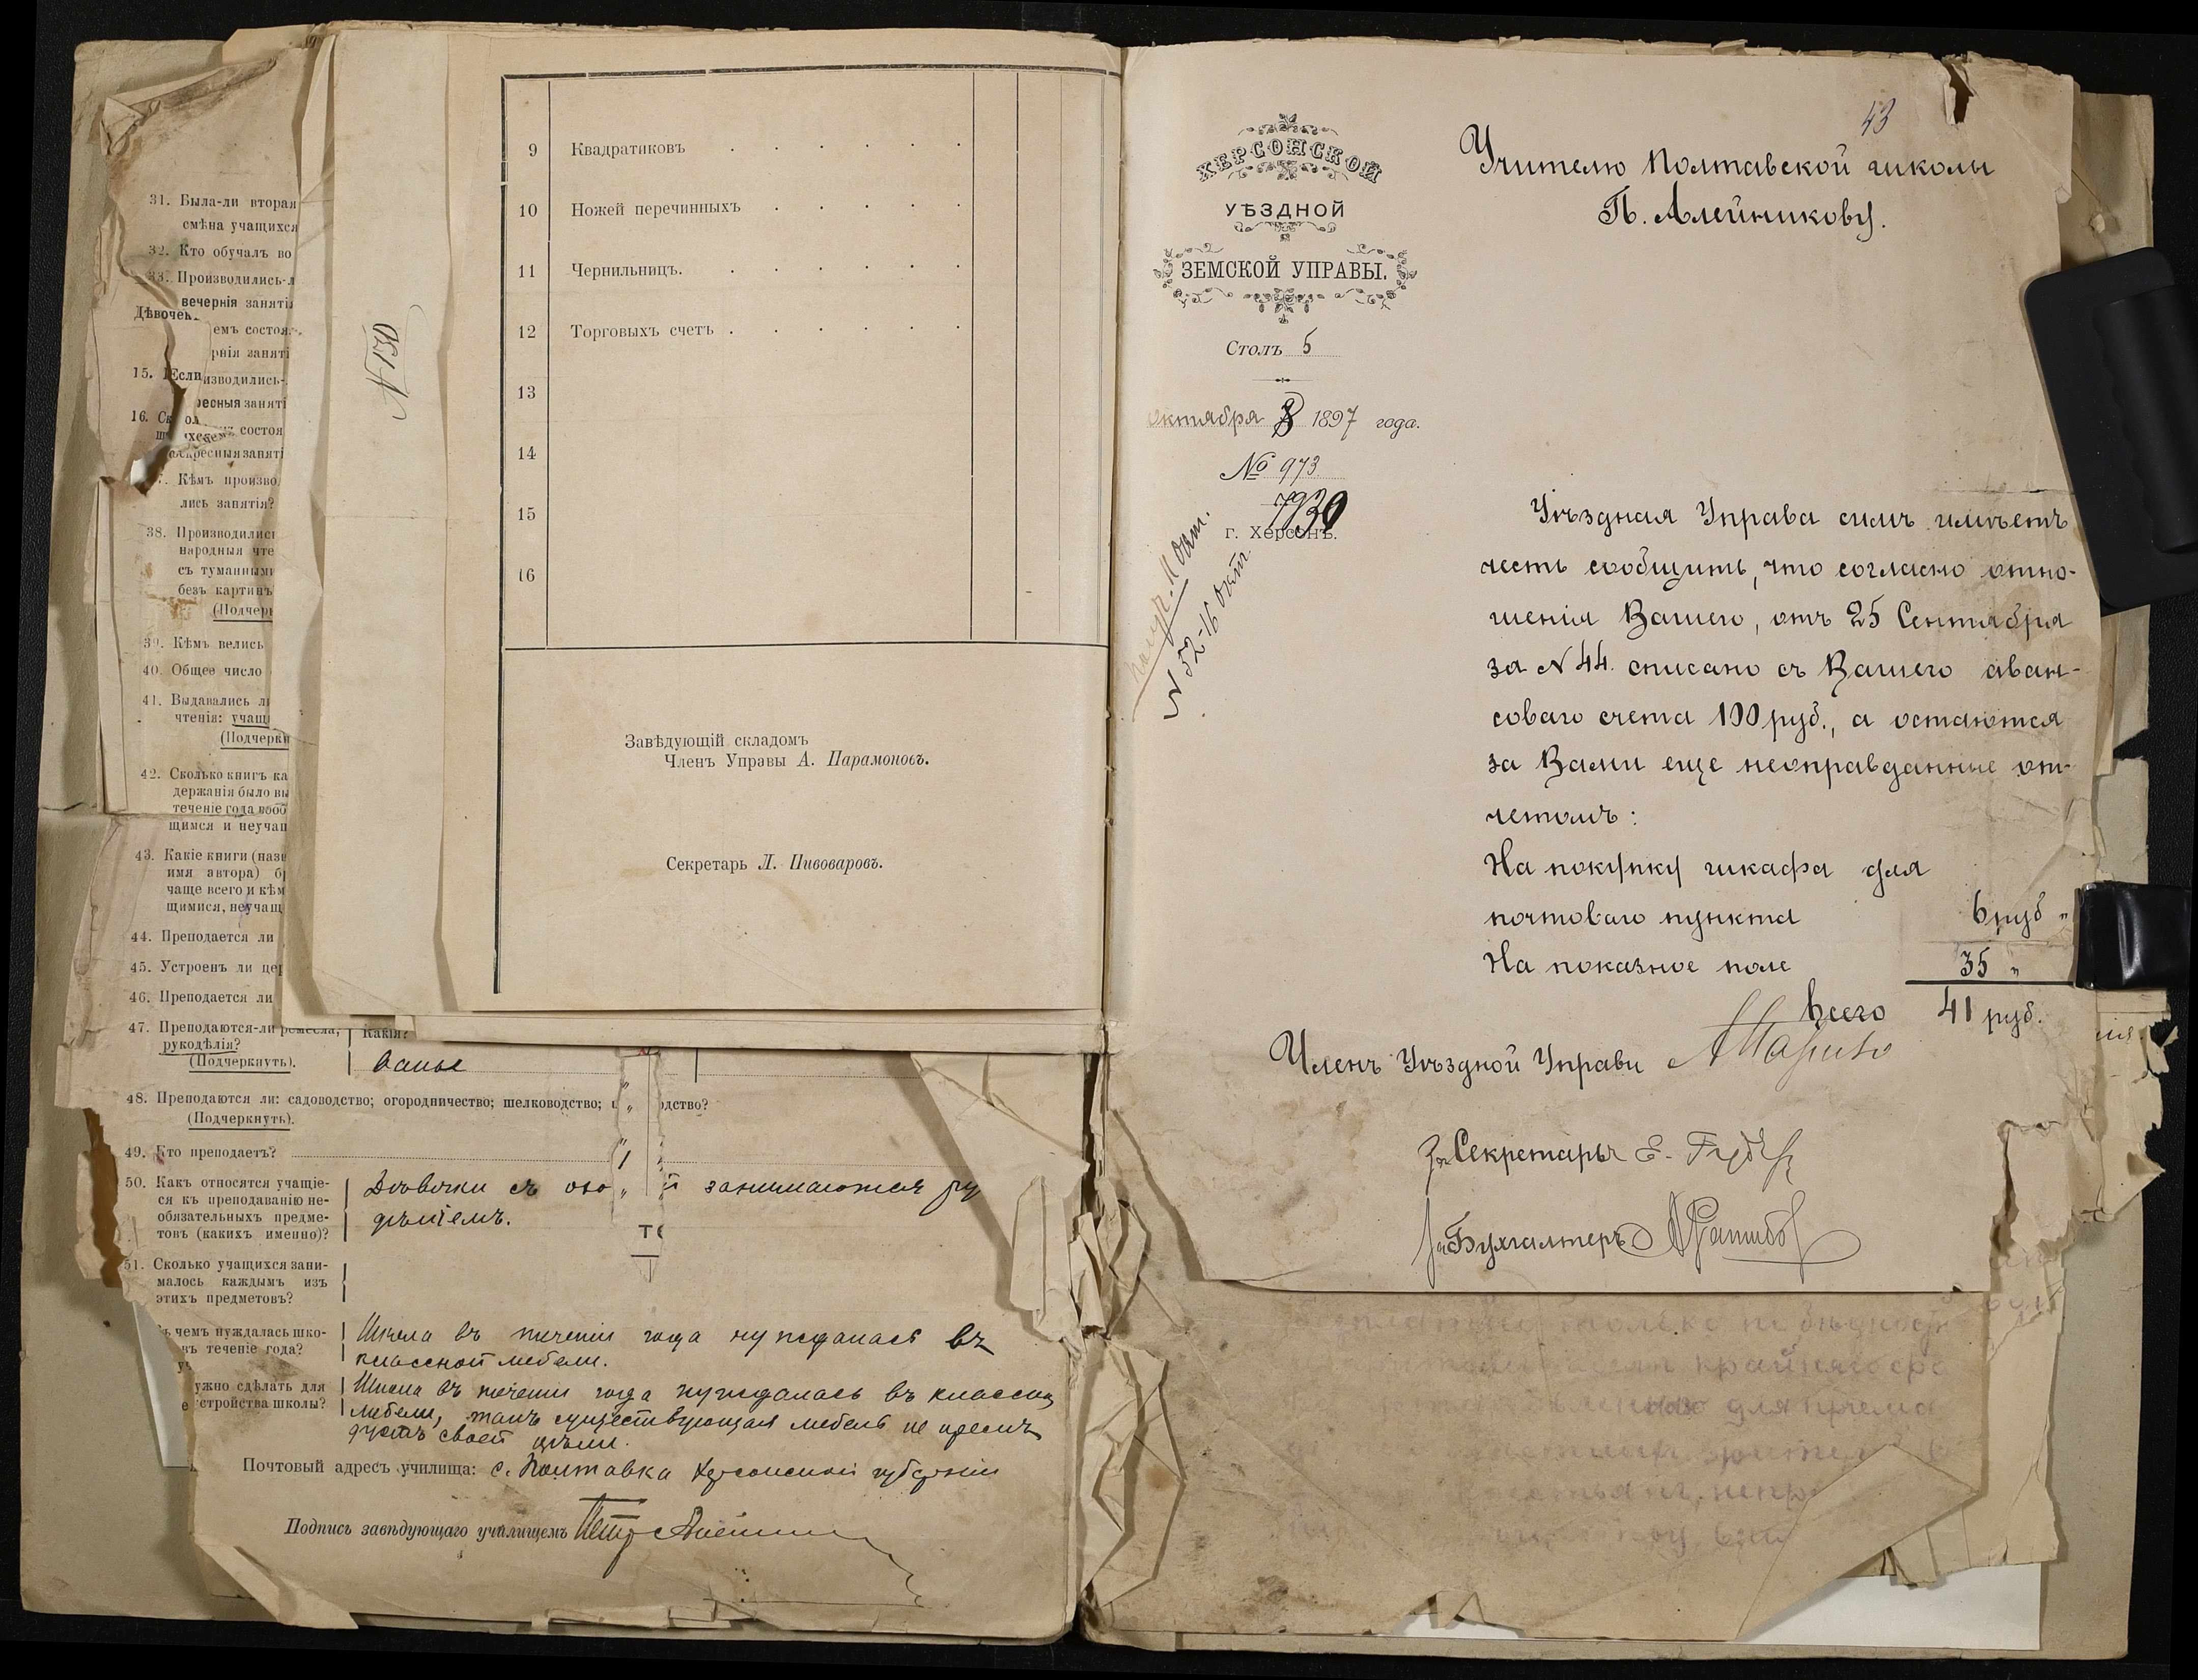 9 Квадратиковъ . . . . . .
10 Ножей перечинныхъ . . . . .
11 Чернильницъ. . . . . . .
12 Торговыхъ счетъ . . . . . .
13
14
15
16
Завѣдующій складомъ
Членъ Управы А. Парамоновъ.
Секретарь Л. Пивоваровъ.
31. Была-ли вторая
смѣна учащихся
32. Кто обучалъ во
33. Производились-л
вечернія занятія
Дѣвочек
емъ состоя
рнія заняті
15. Если
изводились-
ресныя заняті
16.
состоя
скресныя заняті
Кѣмъ произво
лись занятія?
38. Производилис
народныя чте
съ туманными
безъ картинъ
(Подчерк
39. Кѣмъ велись
40. Общее число
41. Выдавались л
чтенія: учащ
(Подчерки
42. Сколько книгъ ка
держанія было вы
теченіе года вооб
щимся и неучащ
43. Какіе книги (назв
имя автора) б
чаще всего и кѣм
щимися, неучащ
44. Преподается ли
45. Устроенъ ли це
46. Преподается ли
47. Преподаются-ли ремесла, Какія?
рукодѣлія?
(Подчеркнуть).
48. Преподаются ли: садоводство; огородничество; шелководство; одство?
(Подчеркнуть).
49. Кто преподаетъ?
50. Какъ относятся учащіе-
ся къ преподаванію не-
обязательныхъ предме-
товъ (какихъ именно)?
Дѣвочки съ охо й занимаются ру
дѣліемъ.
51. Сколько учащихся зани-
малось каждымъ изъ
этихъ предметовъ?
ъ чемъ нуждалась шко-
въ теченіе года?
Школа въ теченіи года нуждалась въ
классной мебели.
ужно сдѣлать для
устройства школы?
Школа въ теченіи года нуждалась въ классной
мебели, такъ существующая мебель не
своей цѣли.
Почтовый адресъ училища: с. Полтавка Херсонской губерніи
Подпись завѣдующаго училищемъ Петръ
43
ХЕРСОНСКОЙ
УѢЗДНОЙ
ЗЕМСКОЙ УПРАВЫ.
Столъ 5
Октября 8 1897 года.
№ 973
7939
г. Херсонъ.
получ. 11 окт.
N 52-16 окт.
Учителю Полтавской школы
П. Алейникову.
Уѣздная Управа симъ имѣетъ
честь сообщить, что согласно отно-
шенія Вашего, отъ 25 Сентября
за N 44. списано съ Вашего аван-
соваго счета 100 руб., а остаются
за Вами еще неоправданные от-
четомъ:
На покупку шкафа для
почтоваго пункта 6 руб "
На показное поле 35 "
Всего 41 руб.
Членъ Уѣздной Управы
За Секретаря Е.
За Бухгалтера